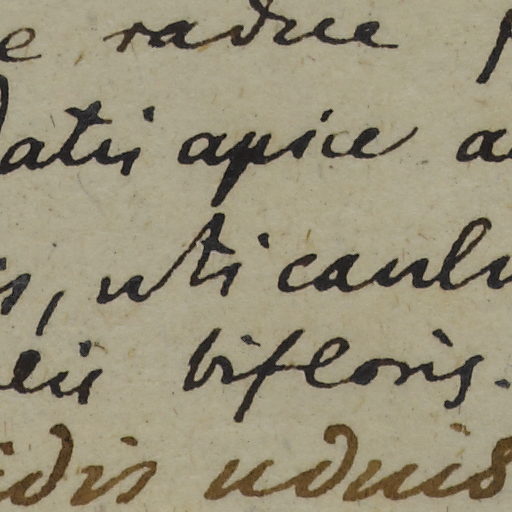 e radice
datis apice a
is, uti caul
leis bifloris.
idis udius